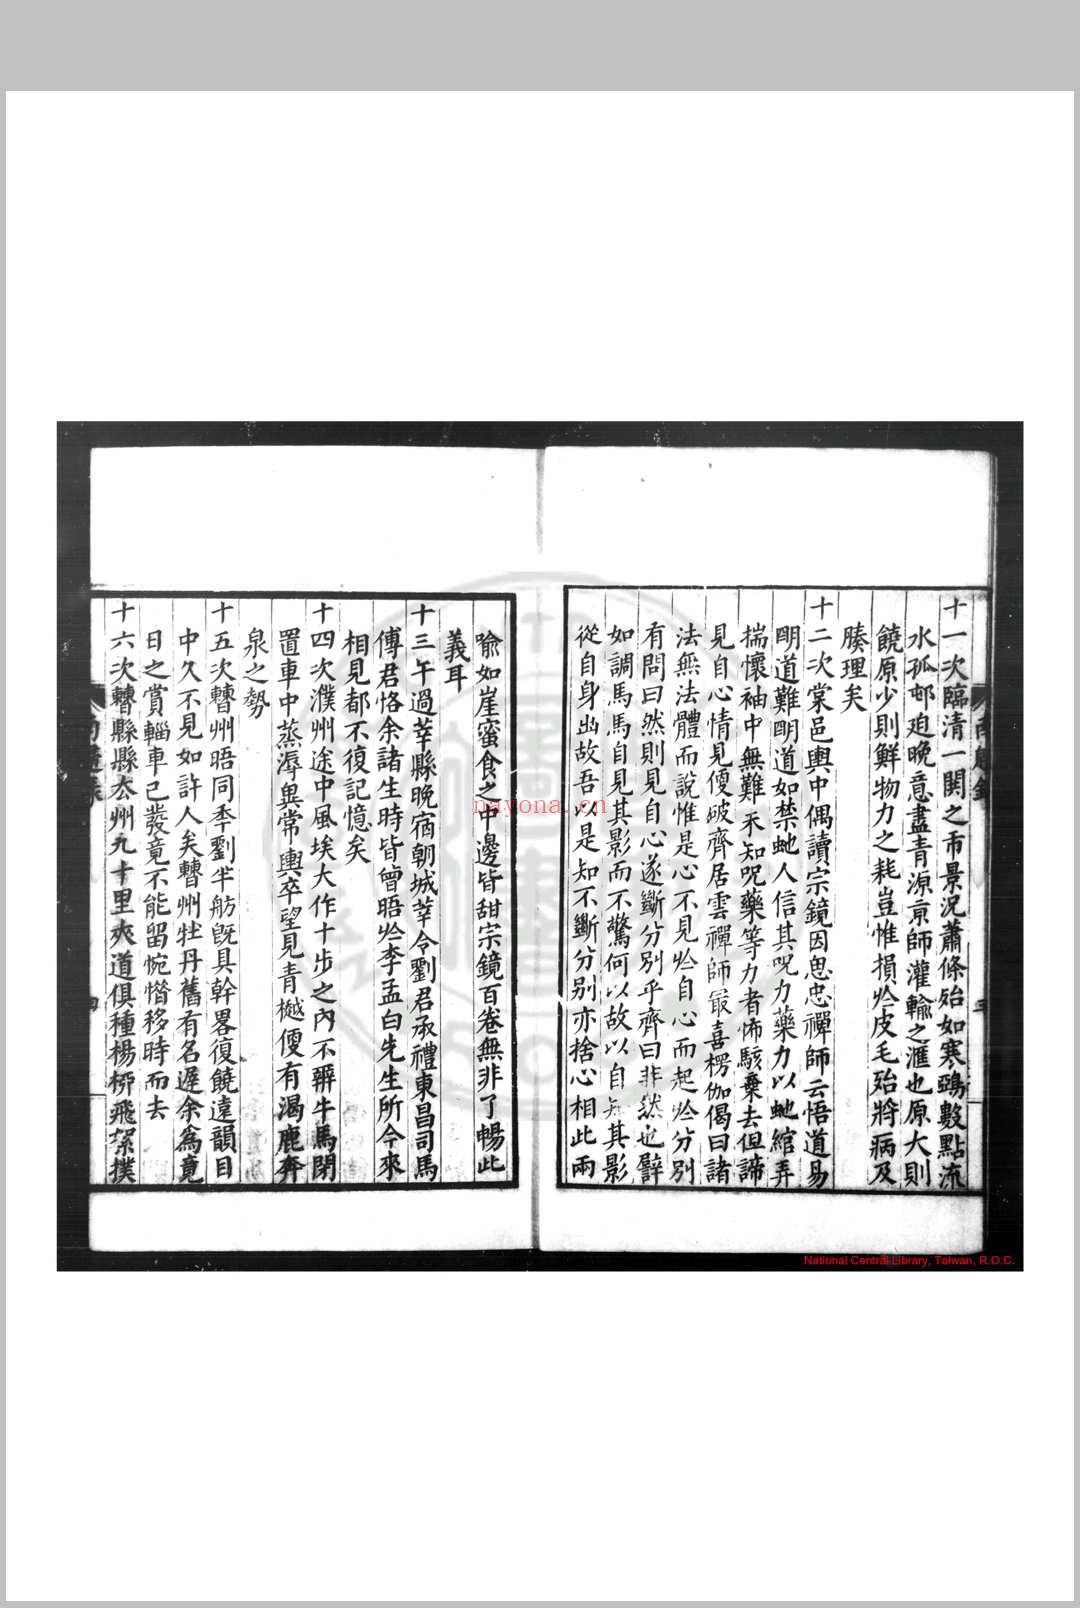 十一次臨清一関之市景況蕭條殆如寒鴉數點流
水孤邨迫晚意盡青源京師灌輸之滙也原大則
饒原少則鮮物力之耗豈惟損於皮毛殆將病及
腠理矣
十二次棠邑輿中偶讀宗鏡因思忠禪師云悟道易
明道難明道如禁虵人信其呪力藥力以虵綰弄
揣懷袖中無難未知呪藥等力者怖駭棄去但諦
見自心情見便破齊居雲禪師最喜楞伽偈曰諸
法無法體而說惟是心不見於自心而起於分別
有問曰然則見自心遂斷分別乎齊曰非然也譬
如調馬馬自見其影而不驚何以故以自知其影
從自身出故吾以是知不斷分別亦捨心相此兩
喻如崖蜜食之中邊皆甜宗鏡百卷無非了暢此
義耳
十三午過莘縣晚宿朝城莘令劉君承禮東昌司馬
傅君恪余諸生時皆曾晤於李孟白先生所今來
相見都不復記憶矣
十四次濮州途中風埃大作十步之內不辨牛馬閉
置車中蒸溽異常輿卒望見青樾便有渴鹿奔
泉之勢
十五次曹州晤同季劉半舫旣具幹畧復饒遠韻目
中久不見如許人矣曹州牡丹舊有名遲余為竟
日之賞輜車已發竟不能留惋惜移時而去
十六次曹縣縣去州九十里夾道俱種楊桺飛絮撲
三
四
nayona.cn
National Central Library, Taiwan, R.O.C.